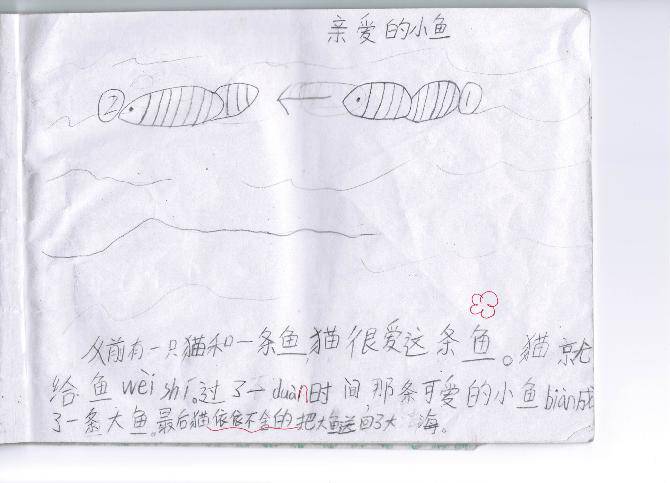 亲爱的小鱼
② ①
从前有一只猫和一条鱼猫很爱这条鱼。猫就
给鱼wèi shí。过了一duàn时间,那条可爱的小鱼biàn成
了一条大鱼。最后猫依依不舍的把大鱼送回了大海。